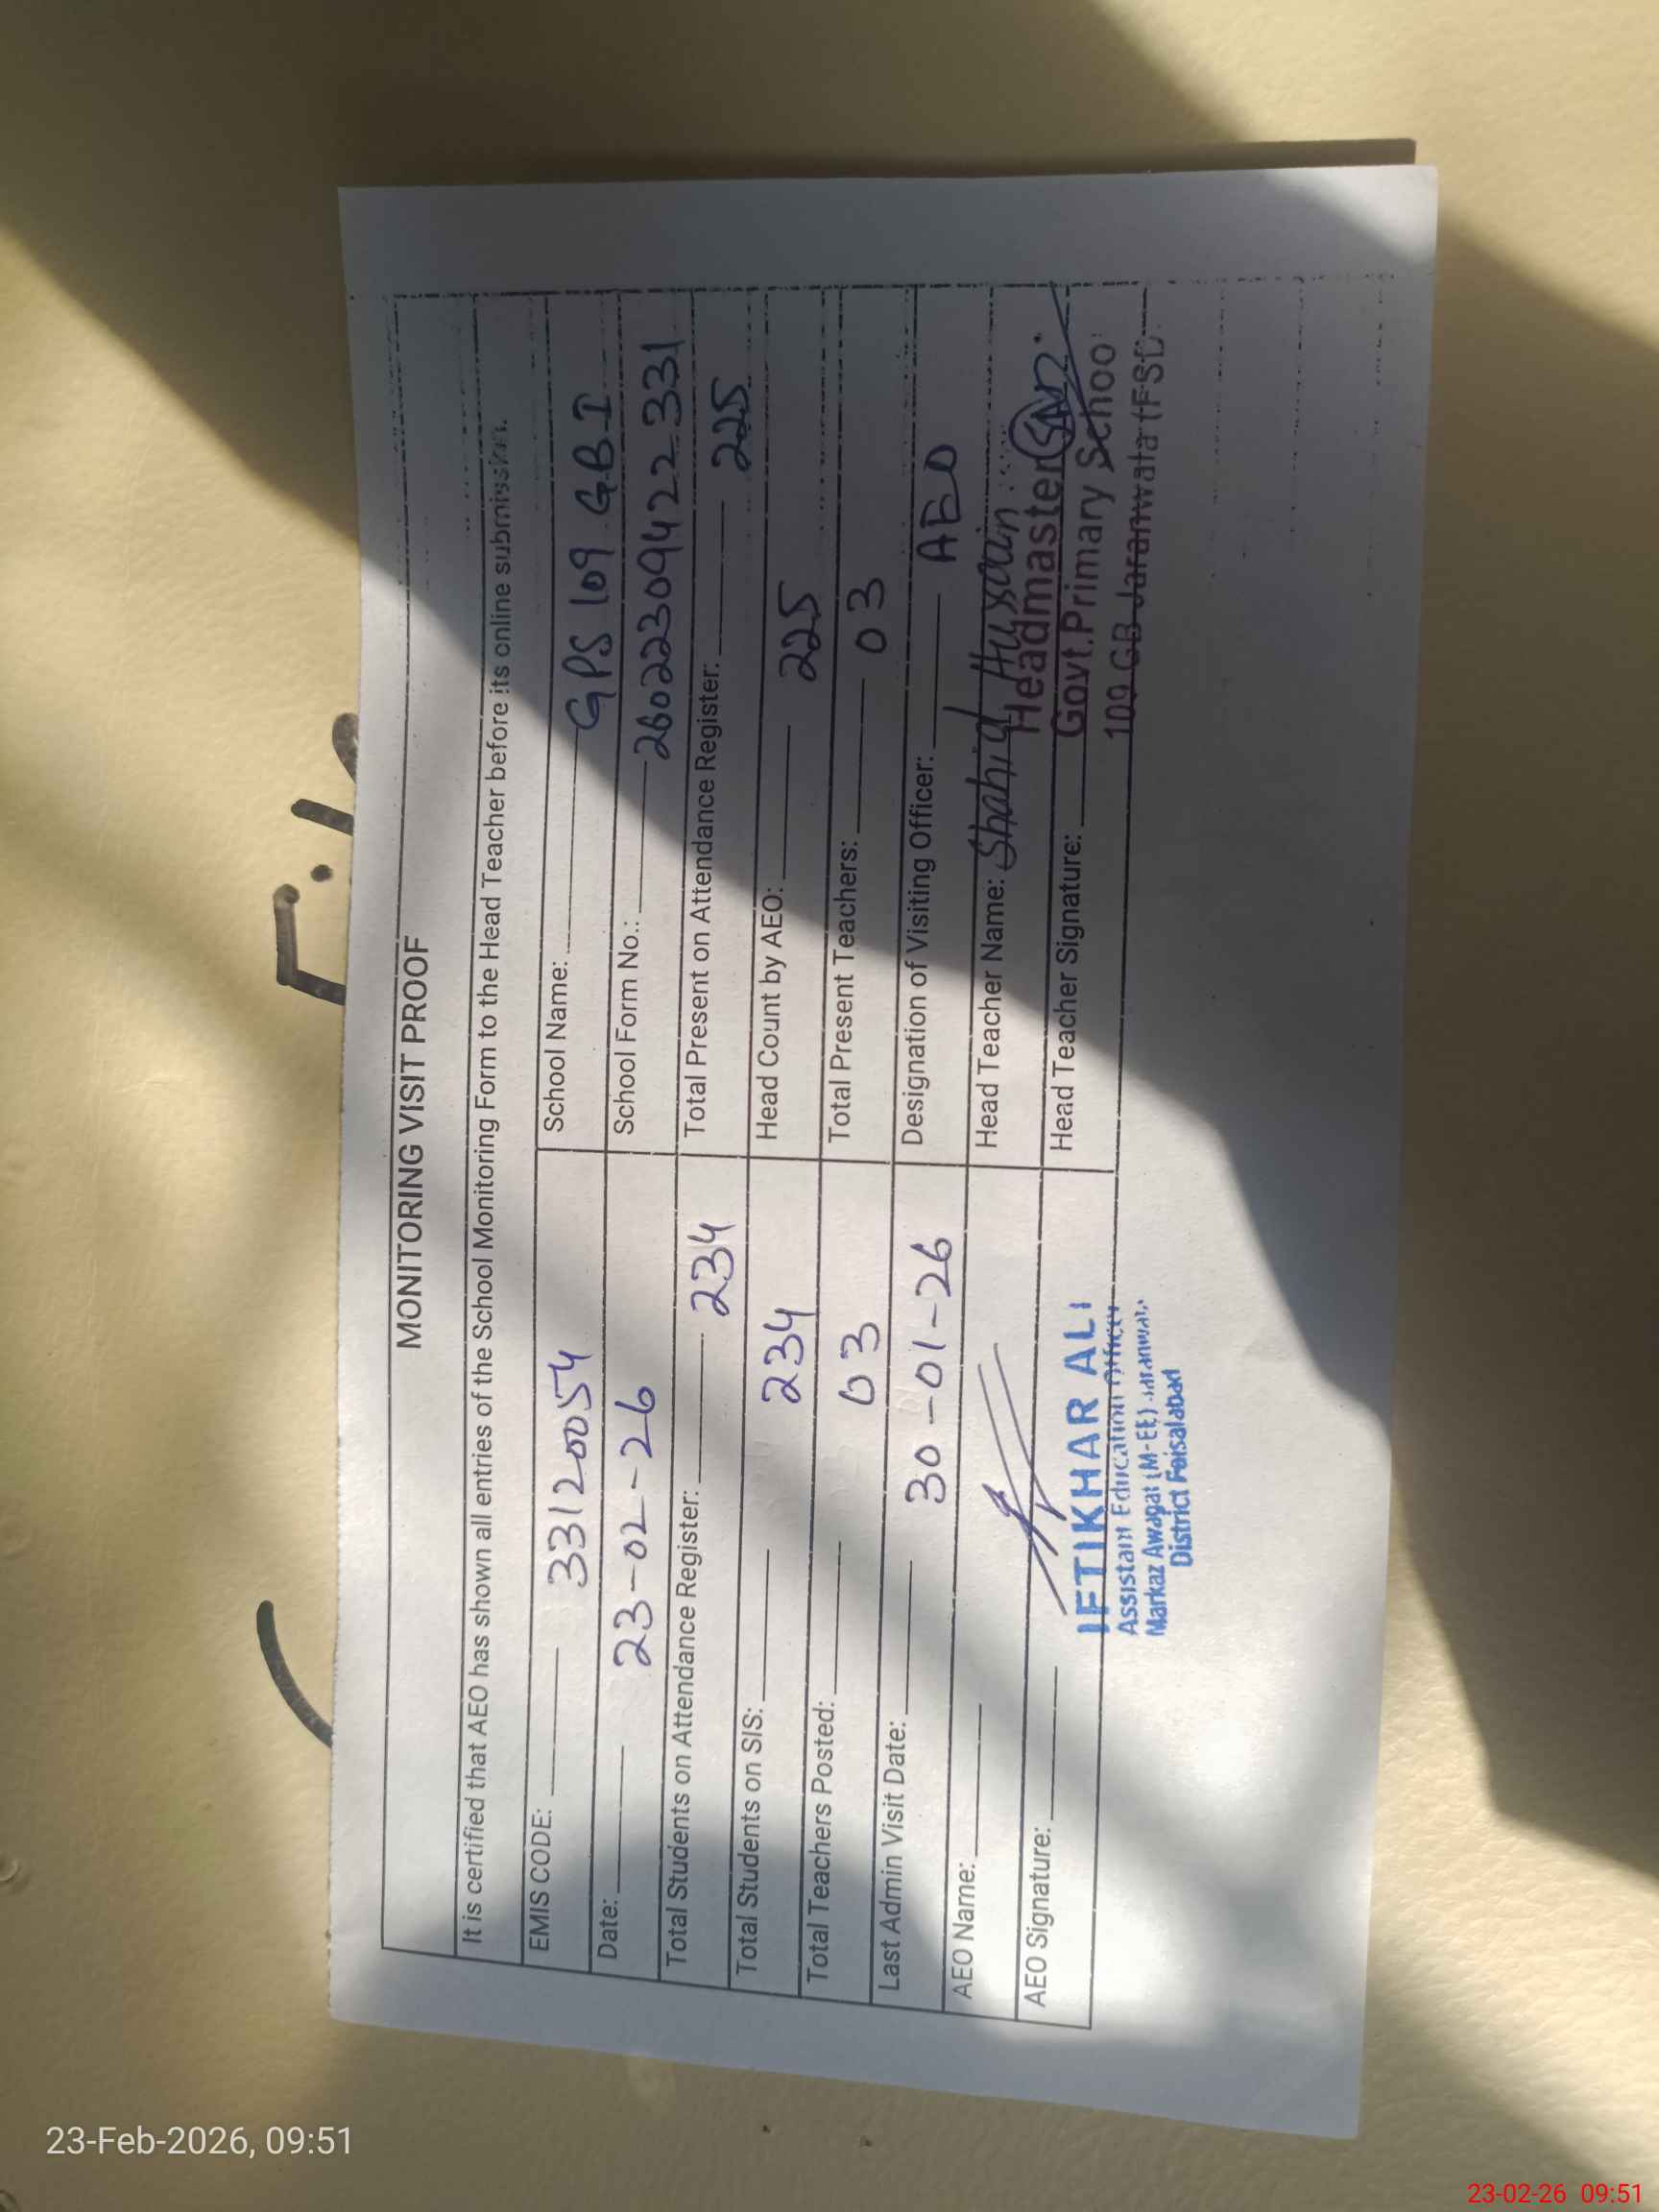 MONITORING VISIT PROOF
It is certified that AEO has shown all entries of the School Monitoring Form to the Head Teacher before its online submission.
EMIS CODE: 33120054 School Name: GPS 109 GB I
Date: 23-02-26 School Form No.: 26022309422331
Total Students on Attendance Register: 234 Total Present on Attendance Register: 225
Total Students on SIS: 234 Head Count by AEO: 225
Total Teachers Posted: 03 Total Present Teachers: 03
Last Admin Visit Date: 30-01-26 Designation of Visiting Officer: AEO
AEO Name: Head Teacher Name: Shahid Hussain
AEO Signature: Head Teacher Signature:
IFTIKHAR ALI
Assistant Education Officer
Markaz Awagat (M-EE) Jaranwala
District Faisalabad
Headmaster
Govt.Primary Schoo
109 GB Jaranwala (FSD)
23-Feb-2026, 09:51
23-02-26 09:51